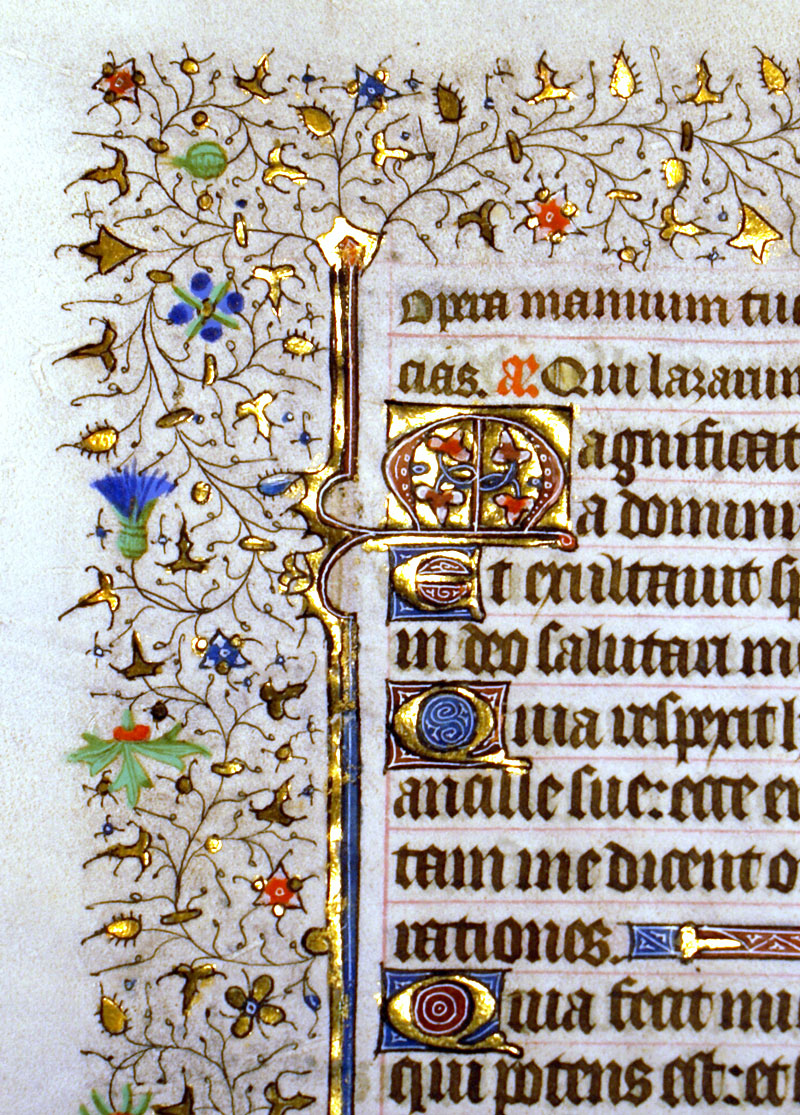 opera manuum tu
cias. A. Qui lazarum
Magnificat
a dominu
Et exultauit sp
in deo salutari m
Quia respexit h
ancille sue: ecce e
tam me dicent o
rationes.
Quia fecit mi
qui potens est: et